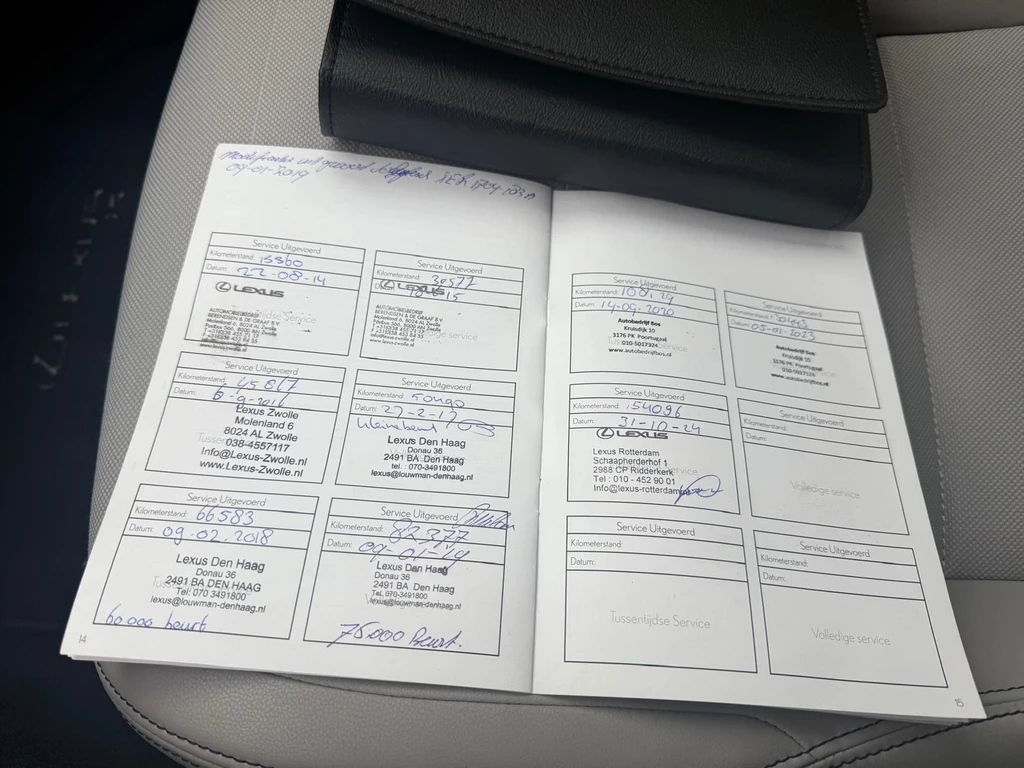 09-01-2019
Service Uitgevoerd
Kilometerstand: 15360
Datum: 22-08-14
LEXUS
AUTOMOBIELBEDRIJF
BERENDSEN & DE GRAAF B.V.
Molenlaan 6, 8024 AL Zwolle
Postbus 566, 8000 AN Zwolle
www.lexus-zwolle.nl
Service Uitgevoerd
Kilometerstand: 30577
Datum:
LEXUS
AUTOMOBIELBEDRIJF
BERENDSEN & DE GRAAF B.V.
Molenlaan 6, 8024 AL Zwolle
Postbus 566, 8000 AN Zwolle
www.lexus-zwolle.nl
Service Uitgevoerd
Kilometerstand: 45017
Datum:
Lexus Zwolle
Molenlaan 6
8024 AL Zwolle
038-4557117
Info@Lexus-Zwolle.nl
www.Lexus-Zwolle.nl
Service Uitgevoerd
Kilometerstand:
Datum: 27-2-17
Lexus Den Haag
Donau 36
2491 BA Den Haag
tel.: 070-3491800
lexus@louwman-denhaag.nl
Service Uitgevoerd
Kilometerstand: 66583
Datum: 09-02-2018
Lexus Den Haag
Donau 36
2491 BA DEN HAAG
Tel. 070 3491800
lexus@louwman-denhaag.nl
60 000 beurt
Service Uitgevoerd
Kilometerstand: 82377
Datum: 09-01-19
Lexus Den Haag
Donau 36
2491 BA DEN HAAG
Tel. 070-3491800
lexus@louwman-denhaag.nl
75.000 Beurt.
14
Service Uitgevoerd
Kilometerstand:
Datum: 14-09-2020
Autobedrijf Bos
Kruisdijk 10
3176 PK Poortugaal
010-5017324
www.autobedrijfbos.nl
Service Uitgevoerd
Kilometerstand:
Datum: 05-01-2023
Autobedrijf Bos
Kruisdijk 10
3176 PK Poortugaal
010-5017324
www.autobedrijfbos.nl
Service Uitgevoerd
Kilometerstand: 154096
Datum: 31-10-24
LEXUS
Lexus Rotterdam
Schaapherderhof 1
2988 CP Ridderkerk
Tel : 010 - 452 90 01
Info@lexus-rotterdam
Service Uitgevoerd
Kilometerstand:
Datum:
Volledige service
Service Uitgevoerd
Kilometerstand:
Datum:
Tussentijdse Service
Service Uitgevoerd
Kilometerstand:
Datum:
Volledige service
15